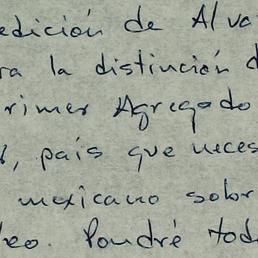 edición de Alva
ra la distinción d
rimer Agregado
, país que neces
mexicano sobr
eo. Pondré tod